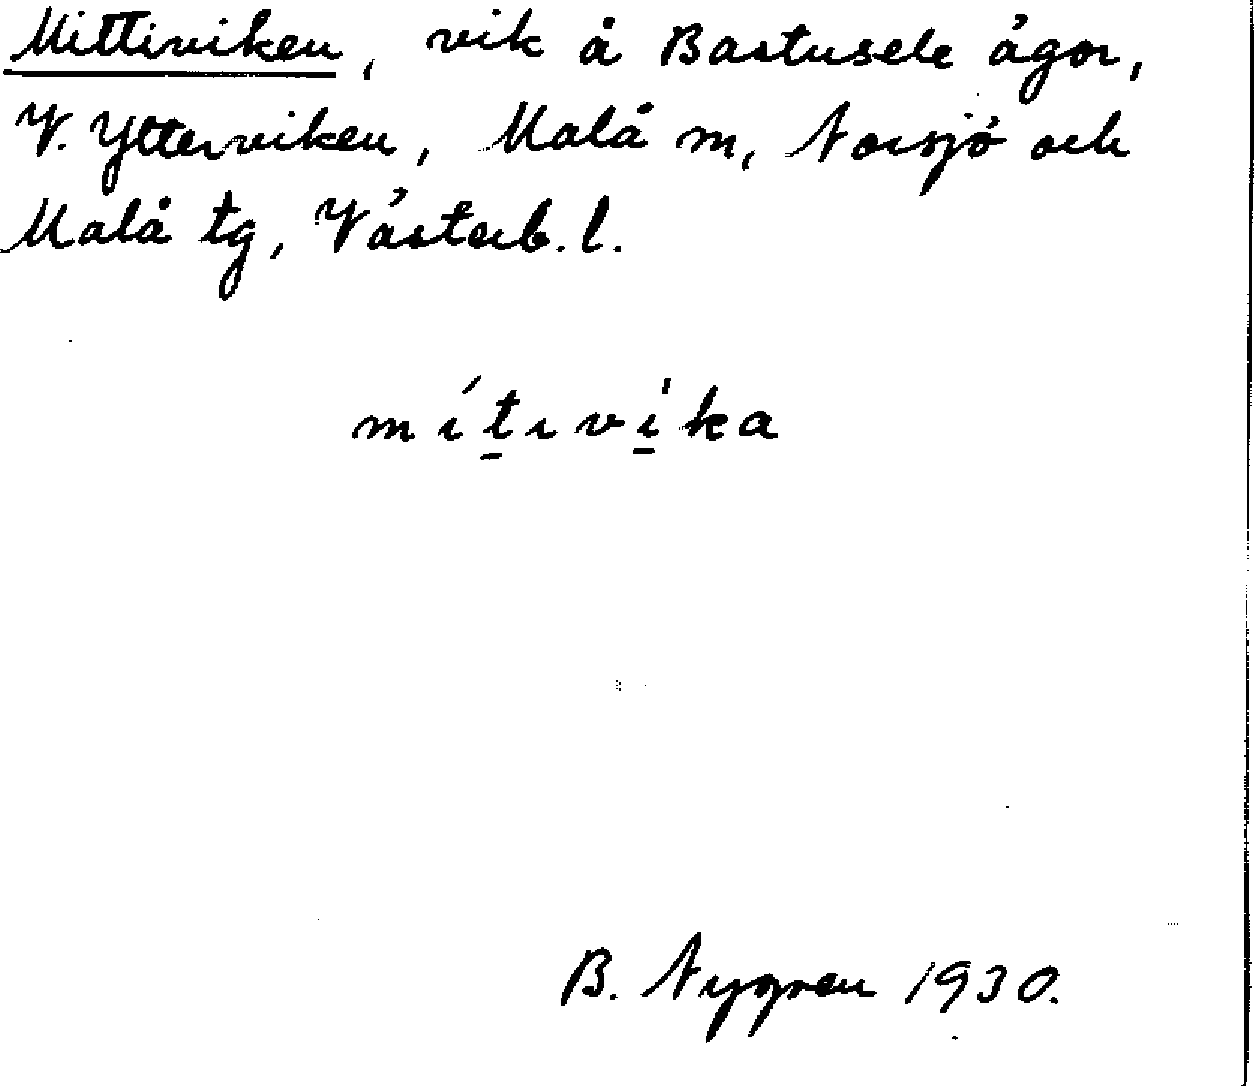 Mittiviken, vik å Bastusele ägor,
V. Ytterviken, Malå m, Norsjö och
Malå tg, Västerb. l.
mítivi̍ka
B. Nygren 1930.